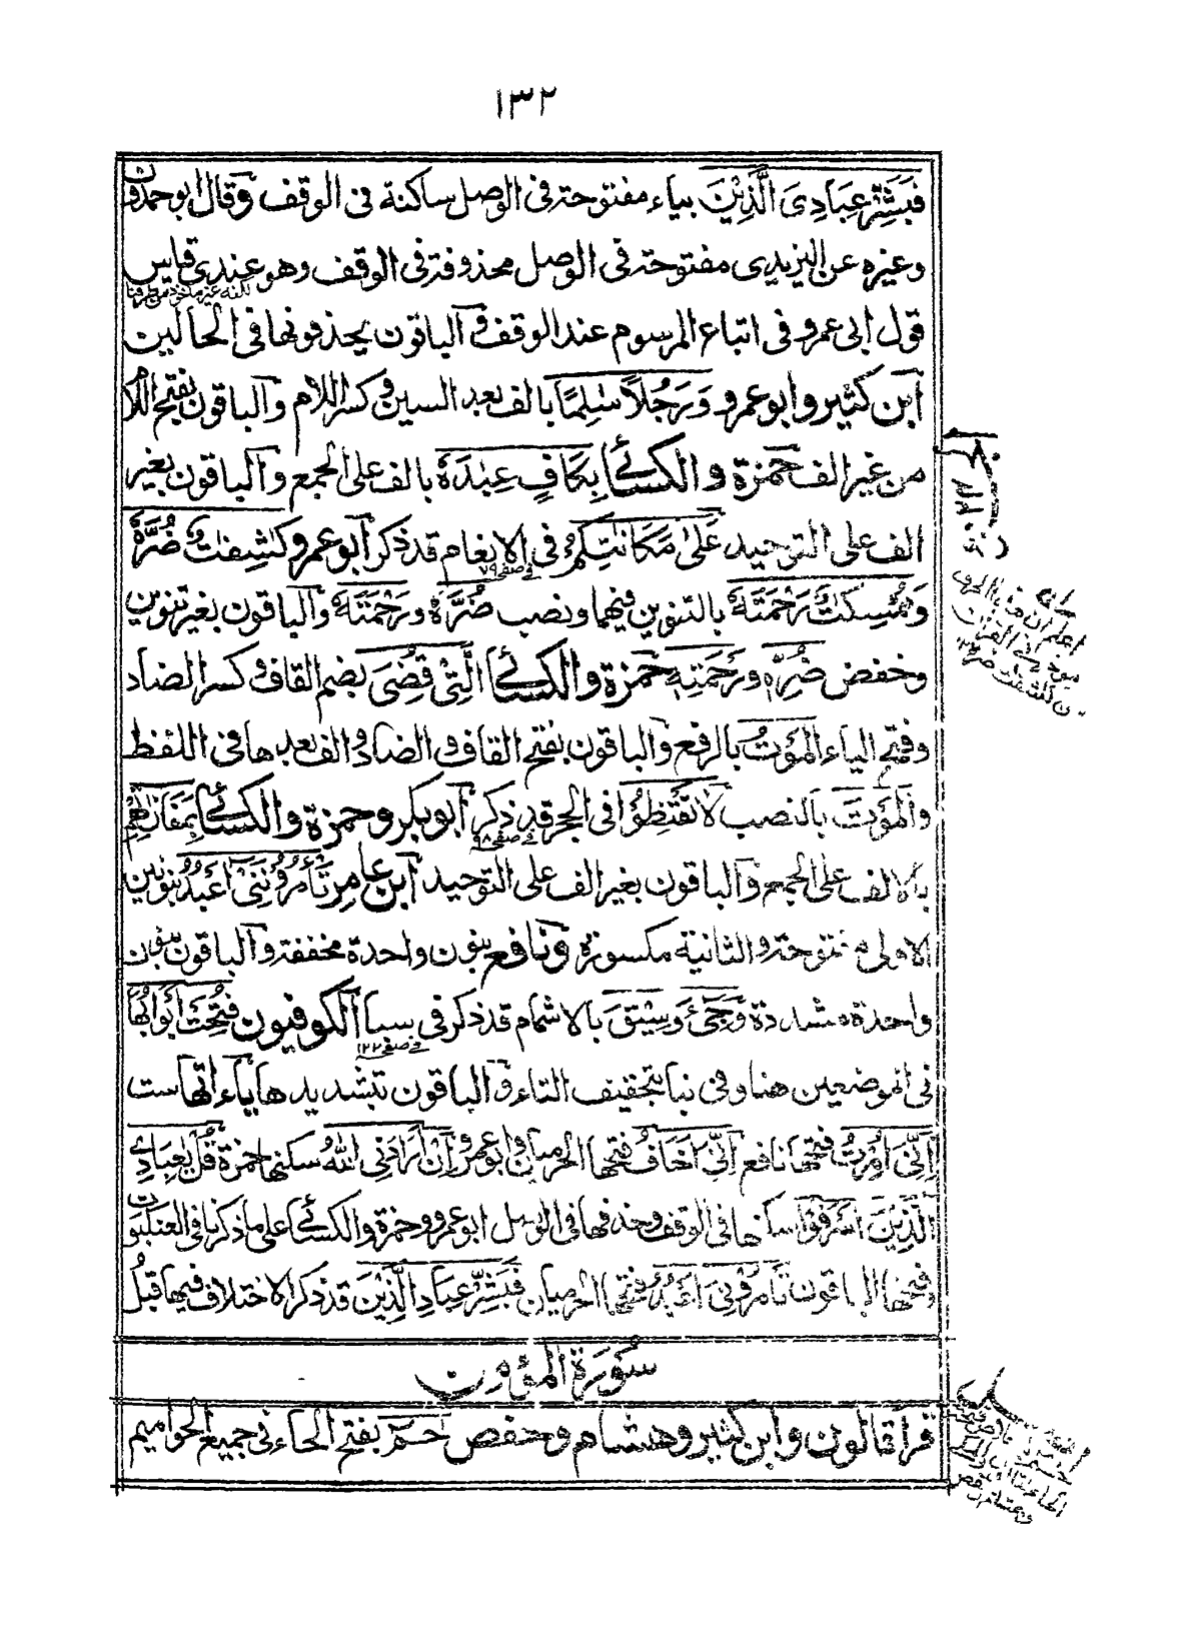 ١٣٢
فَبَشِّرْ عِبَادِيَ الَّذِيْنَ بياء مفتوحة فى الوصل ساكنة فى الوقف وقال ابو حمدون
وغيره عن اليزيدى مفتوحة فى الوصل محذوفة فى الوقف وهو عندى قياس
قول ابى عمرو فى اتباع المرسوم عند الوقف و الباقون يحذفونها فى الحالين
ابن كثير وابو عمرو وَرَجُلاً سٰلِمًا بالف بعد السين وكسر اللام والباقون بفتح اللام
من غير الف حمزة والكسائے بِكَافٍ عِبٰدَهٗ بالف على الجمع والباقون بغير
الف على التوحيد عَلىٰ مَكَانَتِكُمْ فى الانعام قد ذكر ابو عمرو كٰشِفٰتٌ ضُرَّهٗ
فى صفے ٧٩
وَمُمْسِكٰتٌ رَحْمَتَهٗ بالتنوين فيهما ونصب ضُرَّهٗ ورَحْمَتَهٗ والباقون بغير تنوين
وخفض ضُرِّهٖ ورَحْمَتِهٖ حمزة والكسائے الَّتِىْ قُضِىَ بضم القاف وكسر الضاد
وفتح الياء الْمَوْتُ بالرفع والباقون بفتح القاف و الضاد والف بعدها فى اللفظ
والْمَوْتَ بالنصب لَا تَقْنَطُوْا فى الحجر قد ذكر ابو بكر وحمزة والكسائے بِمَفَازٰتِهِمْ
فے صفے ٩٨
بالالف على الجمع والباقون بغير الف على التوحيد ابن عامر تَأْمُرُوْنَنِىْ اَعْبُدُ بنونين
الاولى مفتوحة والثانية مكسورة ونافع بنون واحدة مخففة والباقون بنون
واحدة مشددة وَجِىْءَ وَسِيْقَ بالاشمام قد ذكر فى سبا الكوفيون فُتِحَتْ اَبْوَابُهَا
فے صفے ١٢٢
فى الموضعين هنا وفى نبا بتخفيف التاء و الباقون بتشديدها ياءاتها ست
اِنِّىْ اُمِرْتُ فتحها نافع اِنِّىْ اَخَافُ فتحها الحرميان وابو عمرو اِنْ اَرَادَنِىَ اللهُ سكنها حمزة قُلْ يٰعِبَادِىَ
الَّذِيْنَ اَسْرَفُوْا سكنها فى الوقف وحذفها فى الوصل ابو عمرو وحمزة والكسائے على ما ذكرنا فى العنكبوت
وفتحها الباقون تَأْمُرُوْنِىْ اَعْبُدُ فتحها الحرميان فَبَشِّرْ عِبَادِ الَّذِيْنَ قد ذكر الاختلاف فيها قبلُ
سُوْرَةُ الْمُؤْمِن
قرأ قالون وابن كثير وهشام وحفص حٰمٓ بفتح الحاء فى جميع الحواميم